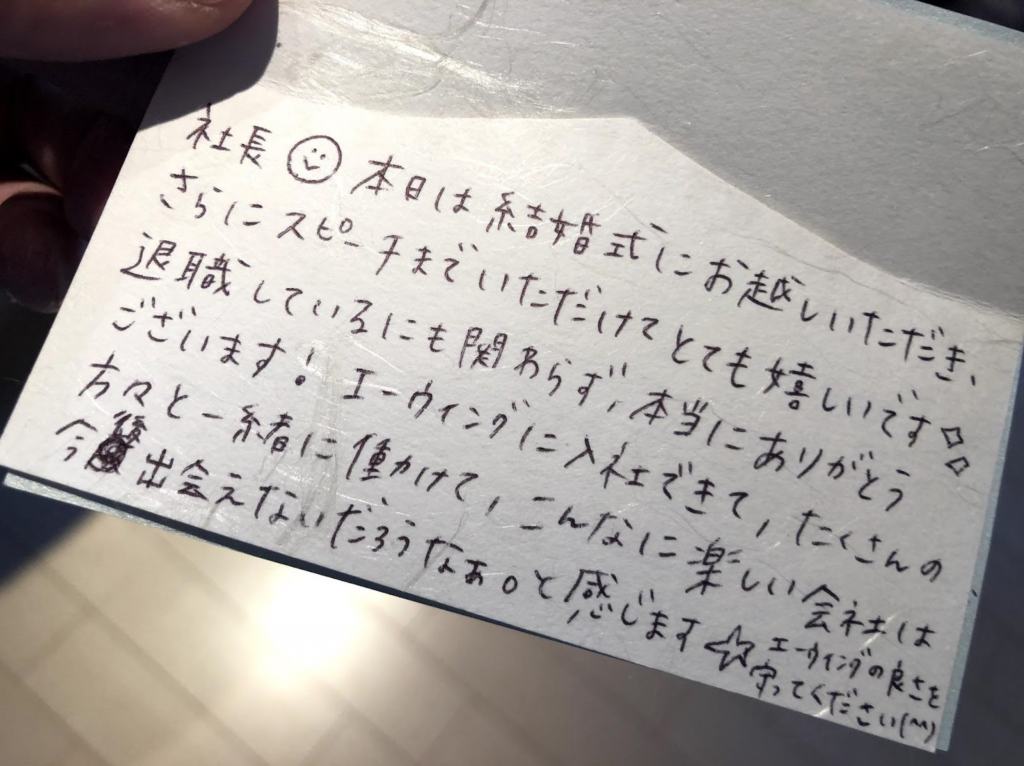 社長☺ 本日は結婚式にお越しいただき、
さらにスピーチまでいただけてとても嬉しいです◇◇
退職しているにも関わらず、本当にありがとう
ございます! エーウィングに入社できて、たくさんの
方々と一緒に働けて、こんなに楽しい会社は
今後出会えないだろうなぁ。と感じます☆
エーウィングの良さを
守ってください(^^)